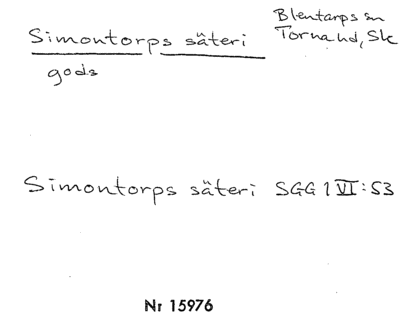 Simontorps säteri
Blentarps sn
Torna hd, Sk
gods
Simontorps säteri SGG 1 VI: 53
Nr 15976